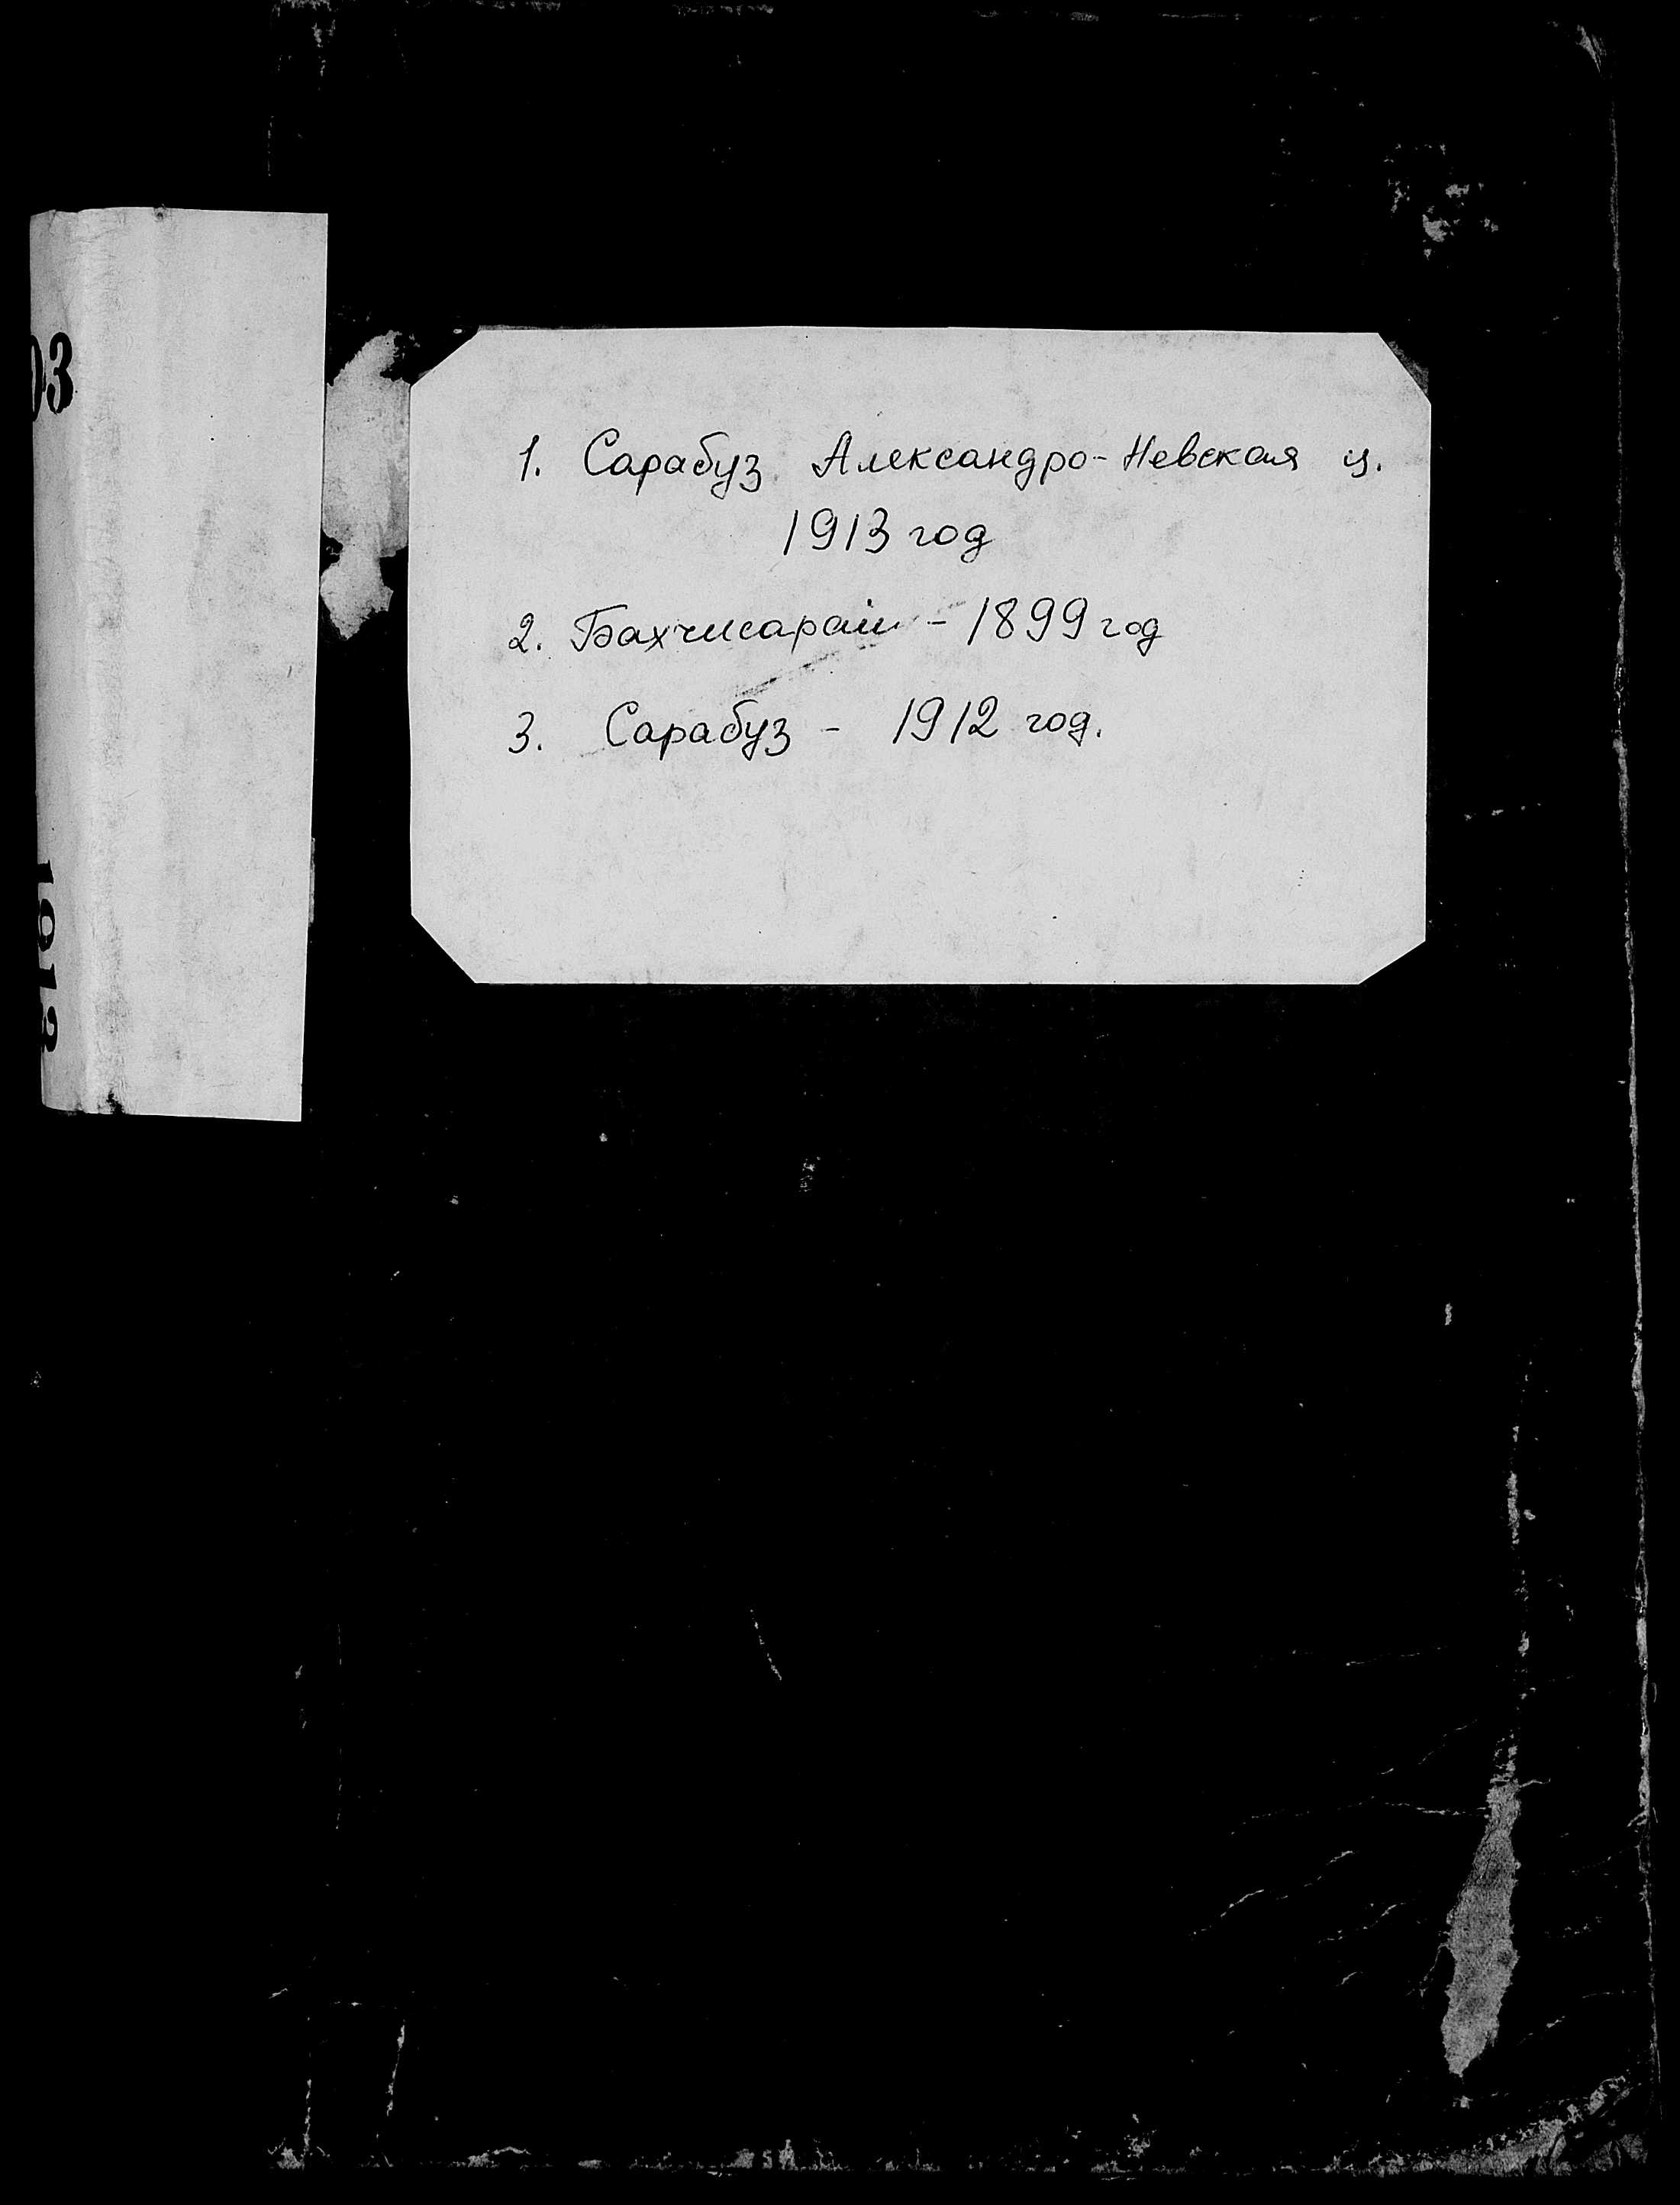 03
1912
1. Сарабуз Александро-Невская ц.
1913 год
2. Бахчисарай - 1899 год
3. Сарабуз - 1912 год.